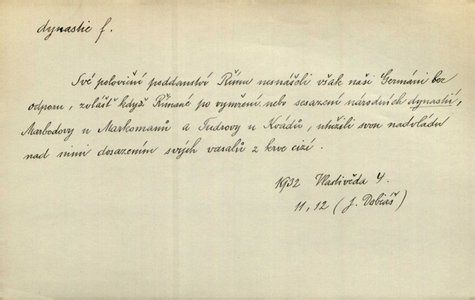 dynastie f.
Své poloviční poddanství Římu nesnášeli však naši Germáni bez
odporu, zvlášť když Římané po vymření nebo sesazení národních dynastií,
Marbodovy u Markomanů a Tudrovy u Kvádů, utužili svou nadvládu
nad nimi dosazením svých vasalů z krve cizí.
1932 Vlastivěda 4.
11, 12 (J. Dobiáš)